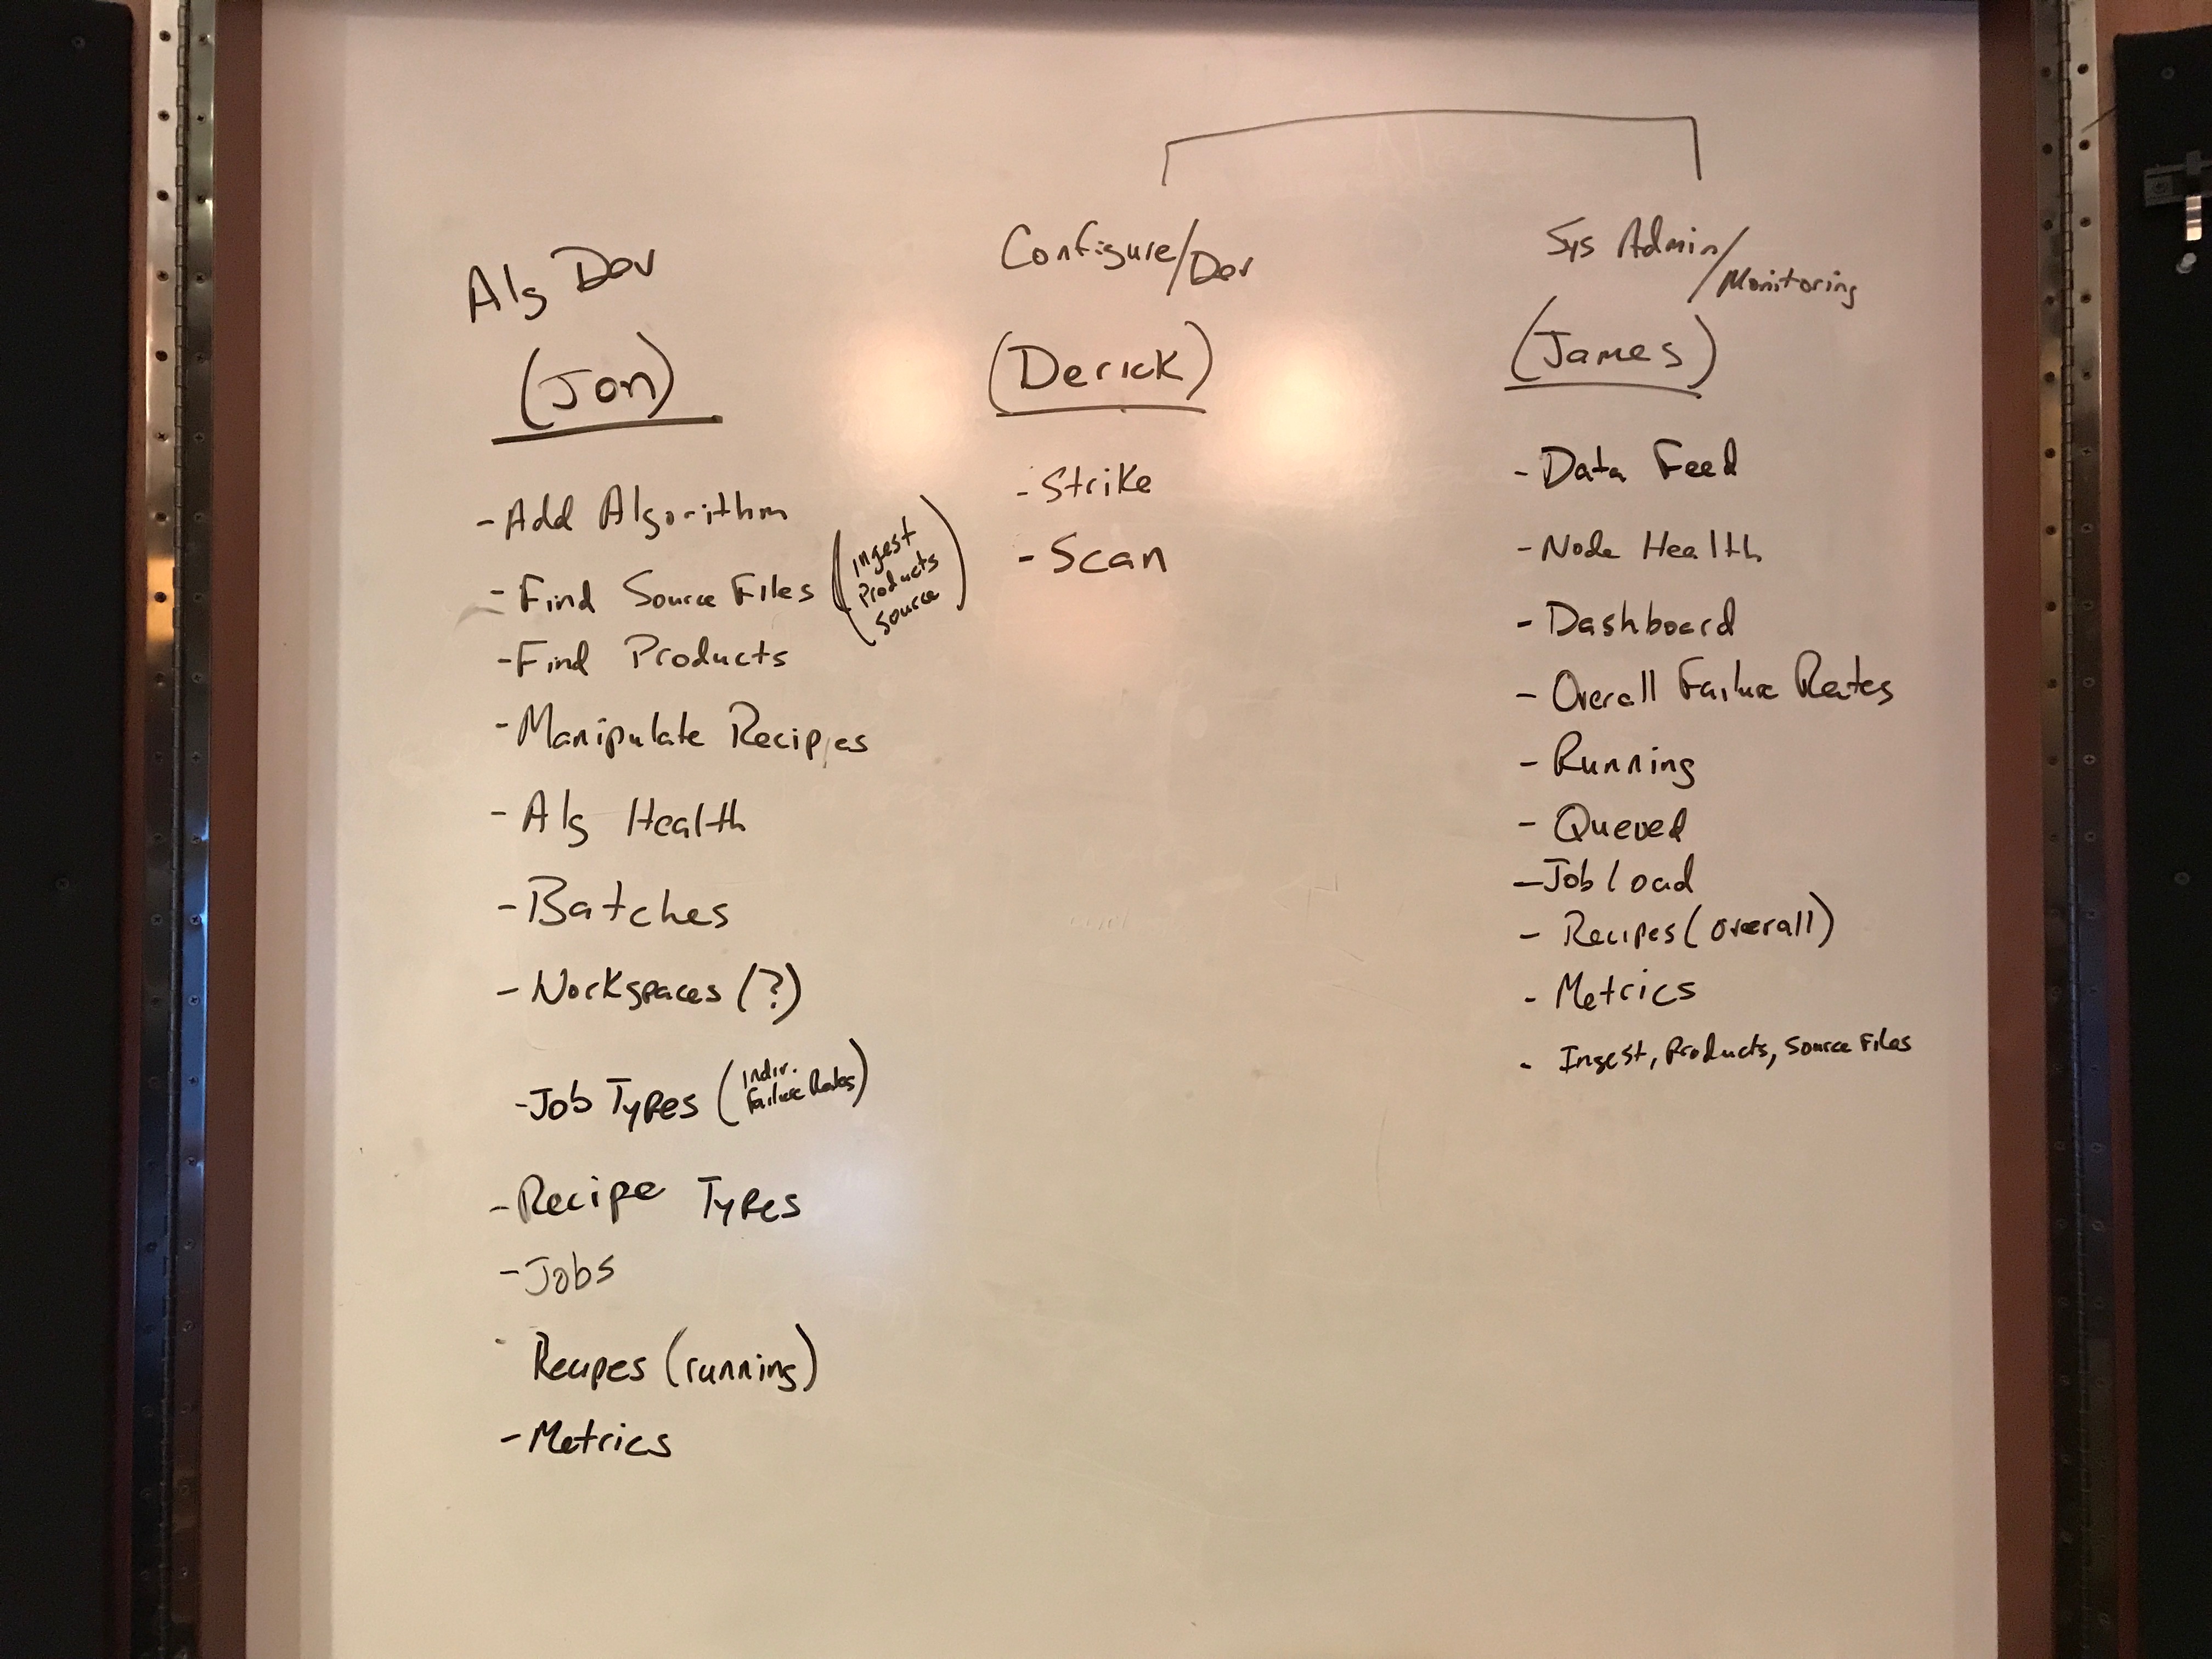 Alg Dev
(Jon)
- Add Algorithm
- Find Source Files (Ingest
Products
Source)
- Find Products
- Manipulate Recipes
- Alg Health
- Batches
- Workspaces (?)
- Job Types (Indiv.
Failure Rates)
- Recipe Types
- Jobs
- Recipes (running)
- Metrics
Configure/Dev
(Derick)
- Strike
- Scan
Sys Admin/Monitoring
(James)
- Data Feed
- Node Health
- Dashboard
- Overall Failure Rates
- Running
- Queued
- Job load
- Recipes (overall)
- Metrics
- Ingest, Products, Source Files